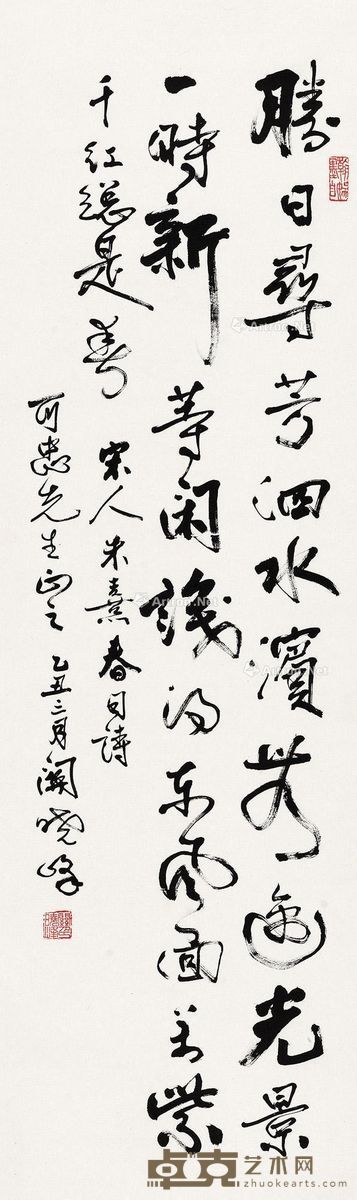 勝日尋芳泗水濱無邊光景
一時新等閑識得東風面萬紫
千紅總是春
宋人朱熹春日詩
可忠先生正之 乙丑三月 關曉峰
卓克艺术网
zhuokearts.com